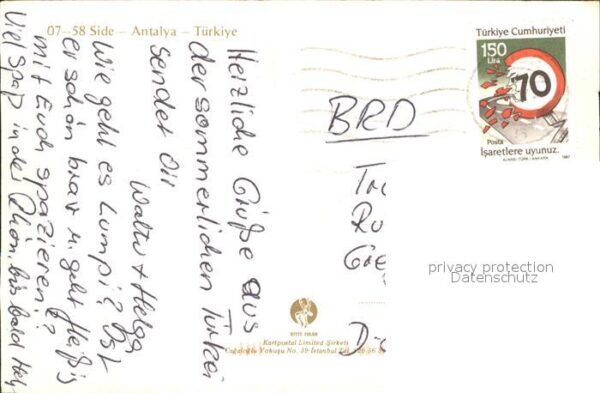 07-58 Side - Antalya - Türkiye
Herzliche Grüße aus
der sommerlichen Türkei
sendet Dir
Walter + Helga
Wie geht es Lumpi? Ist
er schön brav u. geht fleißig
mit Euch spazieren?
Viel Spaß in der Rhön bis bald Helg
BRD
D-
Türkiye Cumhuriyeti
150
Lira
70
Posta
İşaretlere uyunuz.
1987
privacy protection
Datenschutz
Kartpostal Limited Şirketi
Cağaloğlu Yokuşu No. 39 İstanbul Tel.